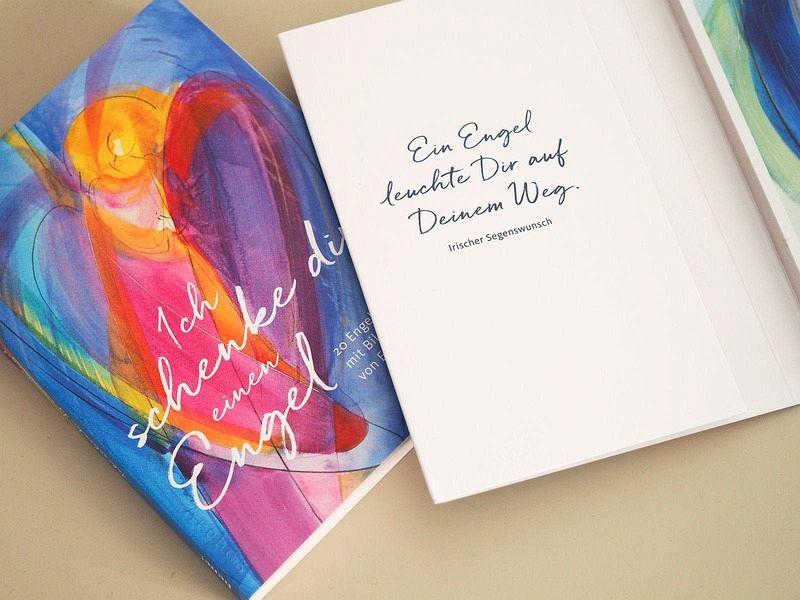 Ich
schenke dir
einen
Engel
20 Engel
mit
von
Ein Engel
leuchte Dir auf
Deinem Weg.
Irischer Segenswunsch